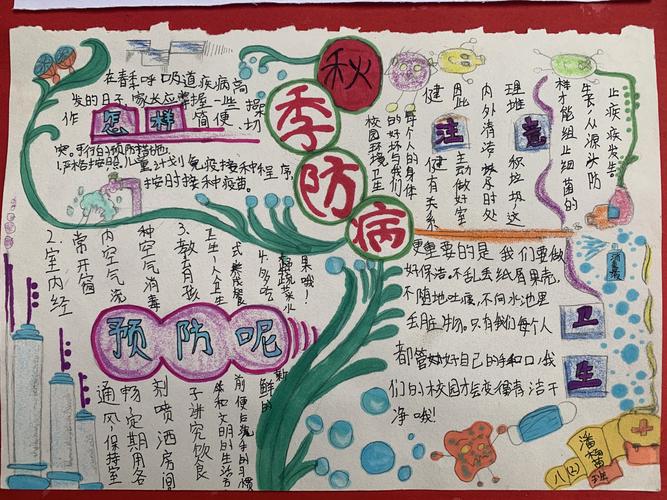 秋季防病
在春季呼吸道疾病高
发的日子,家长应掌握一些
简便、易操
作
怎样
预防呢
1.严格按照儿童计划免疫接种程序,
按时接种疫苗。
2.室内经
常开窗
通风,保持室
内空气洗
畅,定期用各
种空气消毒
剂喷洒房间
3.教育孩
子讲究饮食
卫生个人卫生
4.多吃
新鲜的
蔬菜水
果哦!
每个人的身体
的好坏与我们
校园环境卫生
健
有关系
因此
注意
主动做好室
内外清洁,及时处
理堆
积垃圾,这
样才能组止细菌的
生长,从源头防
止疾病发生。
更重要的是,我们要做
好保洁,不乱丢纸屑果壳,
不随地吐痰,不向水池里
丢脏物。只有我们每个人
都管好自己的手和口,我
们的校园才会变得有洁干
净哦!
卫生
消毒液
八(2)班
潘